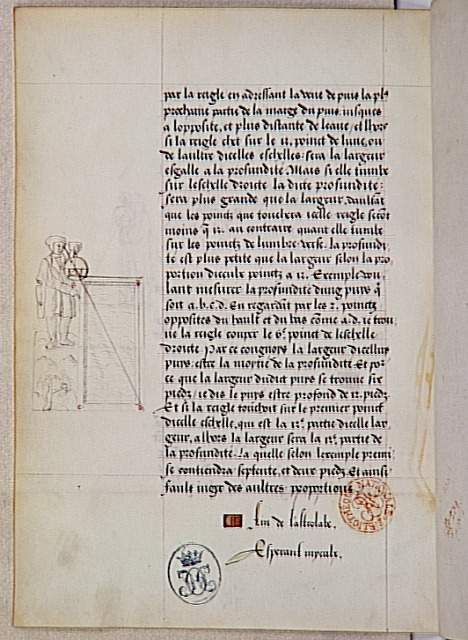 par la reigle en adressant la veue de puis la pl9
prochaine partie de la marge du puis iusques
a lopposite, et plus distante de leaue, et lhors
si la reigle chet sur le 12. poinct de lune, ou
de laultre dicelles eschelles: sera la largeur
esgalle a la profundité. Mais si elle tumbe
sur leschelle droicte la dicte profundité:
sera plus grande que la largeur, daultāt
que les poinctz que touchera icelle reigle serōt
moins q̄ 12. au contraire quant elle tumbe
sur les poinctz de lumbre verse. la profundi
té est plus petite que la largeur selon la pro
portion diceulx poinctz a 12. Exemple vou
lant mesurer la profundité dung puys q̄
soit a.b.c.d. En regardāt par les 2. poinctz
opposites du hault et du bas cōme a.d. ie trou
ue la reigle couper le 6e. poinct de leschelle
droicte. Par ce congnoys la largeur dicelluy
puys: estre la moytie de la profundité. Et por
ce que la largeur dudict puys se trouue six
piedz: ie dis le puys estre profond de 12. piedz
Et si la reigle touchoit sur le premier poinct
dicelle eschelle, qui est la 12e. partie dicelle lar
geur, alhors la largeur sera la 12e. partie de
la profundité. La quelle selon lexemple premi
se contiendra septente, et deux piedz. Et ainsi
fault iuger des aultres proportions.
Fin de lastrolabe.
Esperant